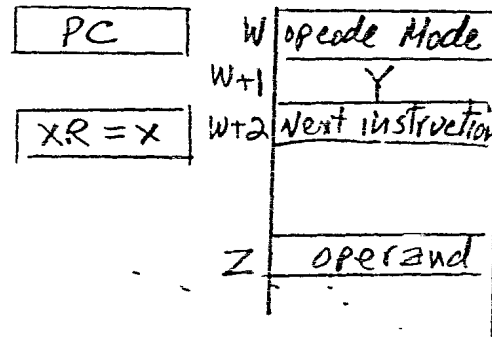 PC
W opcode Mode
W+1 Y
XR = X W+2 Next instruction
Z operand